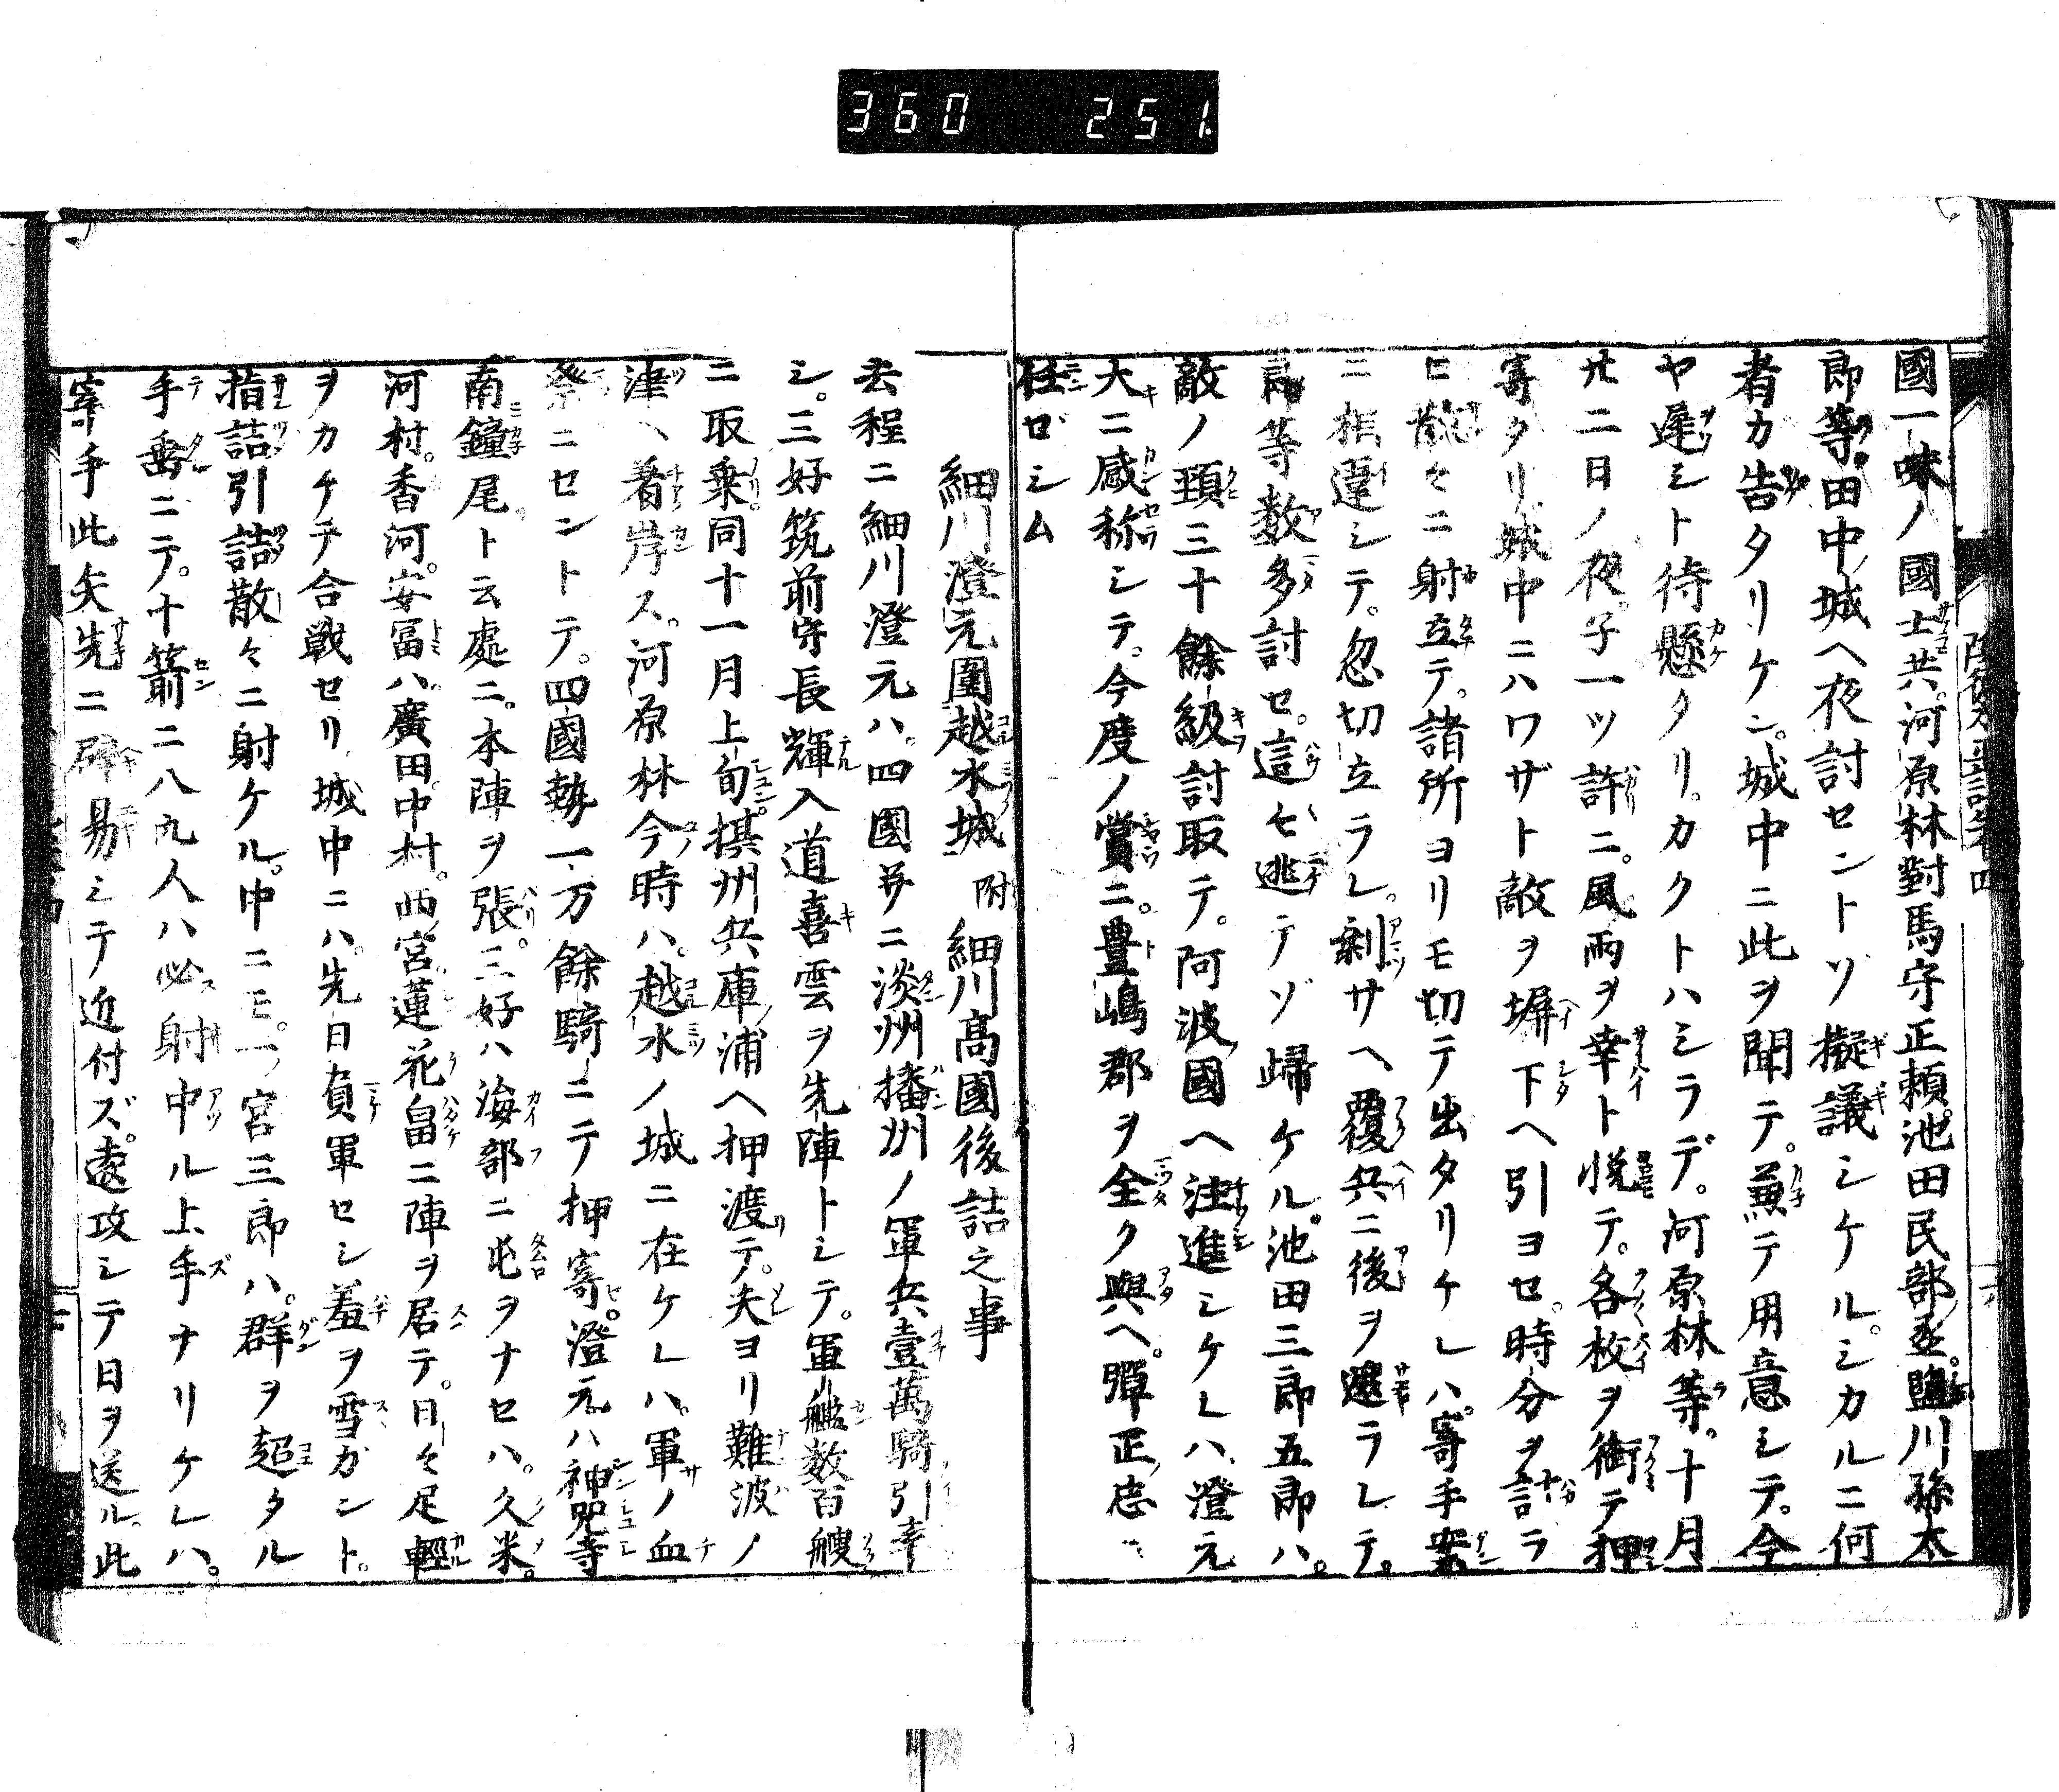 360 251
國一味ノ國士共。河原林對馬守正頼。池田民部丞。鹽川孫太
郎等。田中ノ城ヘ夜討セントソ擬議シケル。シカルニ何
者カ告タリケン。城中ニ此ヲ聞テ。兼テ用意シテ。今
ヤ遲シト待懸タリ。カクトハシラデ。河原林等。十月
廿二日ノ夜。子一ツ許ニ。風雨ヲ幸ト悦テ。各枚ヲ銜テ押
寄タリ。城中ニハワザト敵ヲ塀下ヘ引ヨセ。時分ヲ計ラ
ヒ散々ニ射立テ。諸所ヨリモ切テ出タリケレハ。寄手案
ニ相違シテ。忽切立ラレ。剰サヘ覆兵ニ後ヲ遮ラレテ。
郎等数多討セ。這々逃テゾ歸ケル。池田三郎五郎ハ。
敵ノ頸三十餘級討取テ。阿波國ヘ注進シケレハ、澄元
大ニ感称シテ。今度ノ賞ニ。豊嶋郡ヲ全ク與ヘ。彈正忠
任ゼシム
細川澄元圍越水城 附 細川高國後詰之事
去程ニ細川澄元ハ。四國并ニ淡州播州ノ軍兵壹萬騎引率
シ。三好筑前守長輝入道喜雲ヲ先陣トシテ。軍艦数百艘
ニ取乗。同十一月上旬。摂州兵庫浦ヘ押渡テ。夫ヨリ難波ノ
津ヘ着岸ス。河原林今時ハ。越水ノ城ニ在ケレハ。軍ノ血
祭ニセントテ。四國勢一万餘騎ニテ押寄。澄元ハ神咒寺
南鐘尾ト云處ニ。本陣ヲ張。三好ハ海部ニ屯ヲナセハ。久米。
河村。香河。安冨ハ廣田。中村。西宮蓮花畠ニ陣ヲ居テ。日々足輕
ヲカケテ合戦セリ。城中ニハ。先日負軍セシ羞ヲ雪ガント。
指詰引詰散々ニ射ケル。中ニモ。一宮三郎ハ。群ヲ超タル
手垂ニテ。十箭ニ八九人ハ必射中ル上手ナリケレハ。
寄手此矢先ニ辟易シテ近付ズ。遠攻シテ日ヲ送ル。此